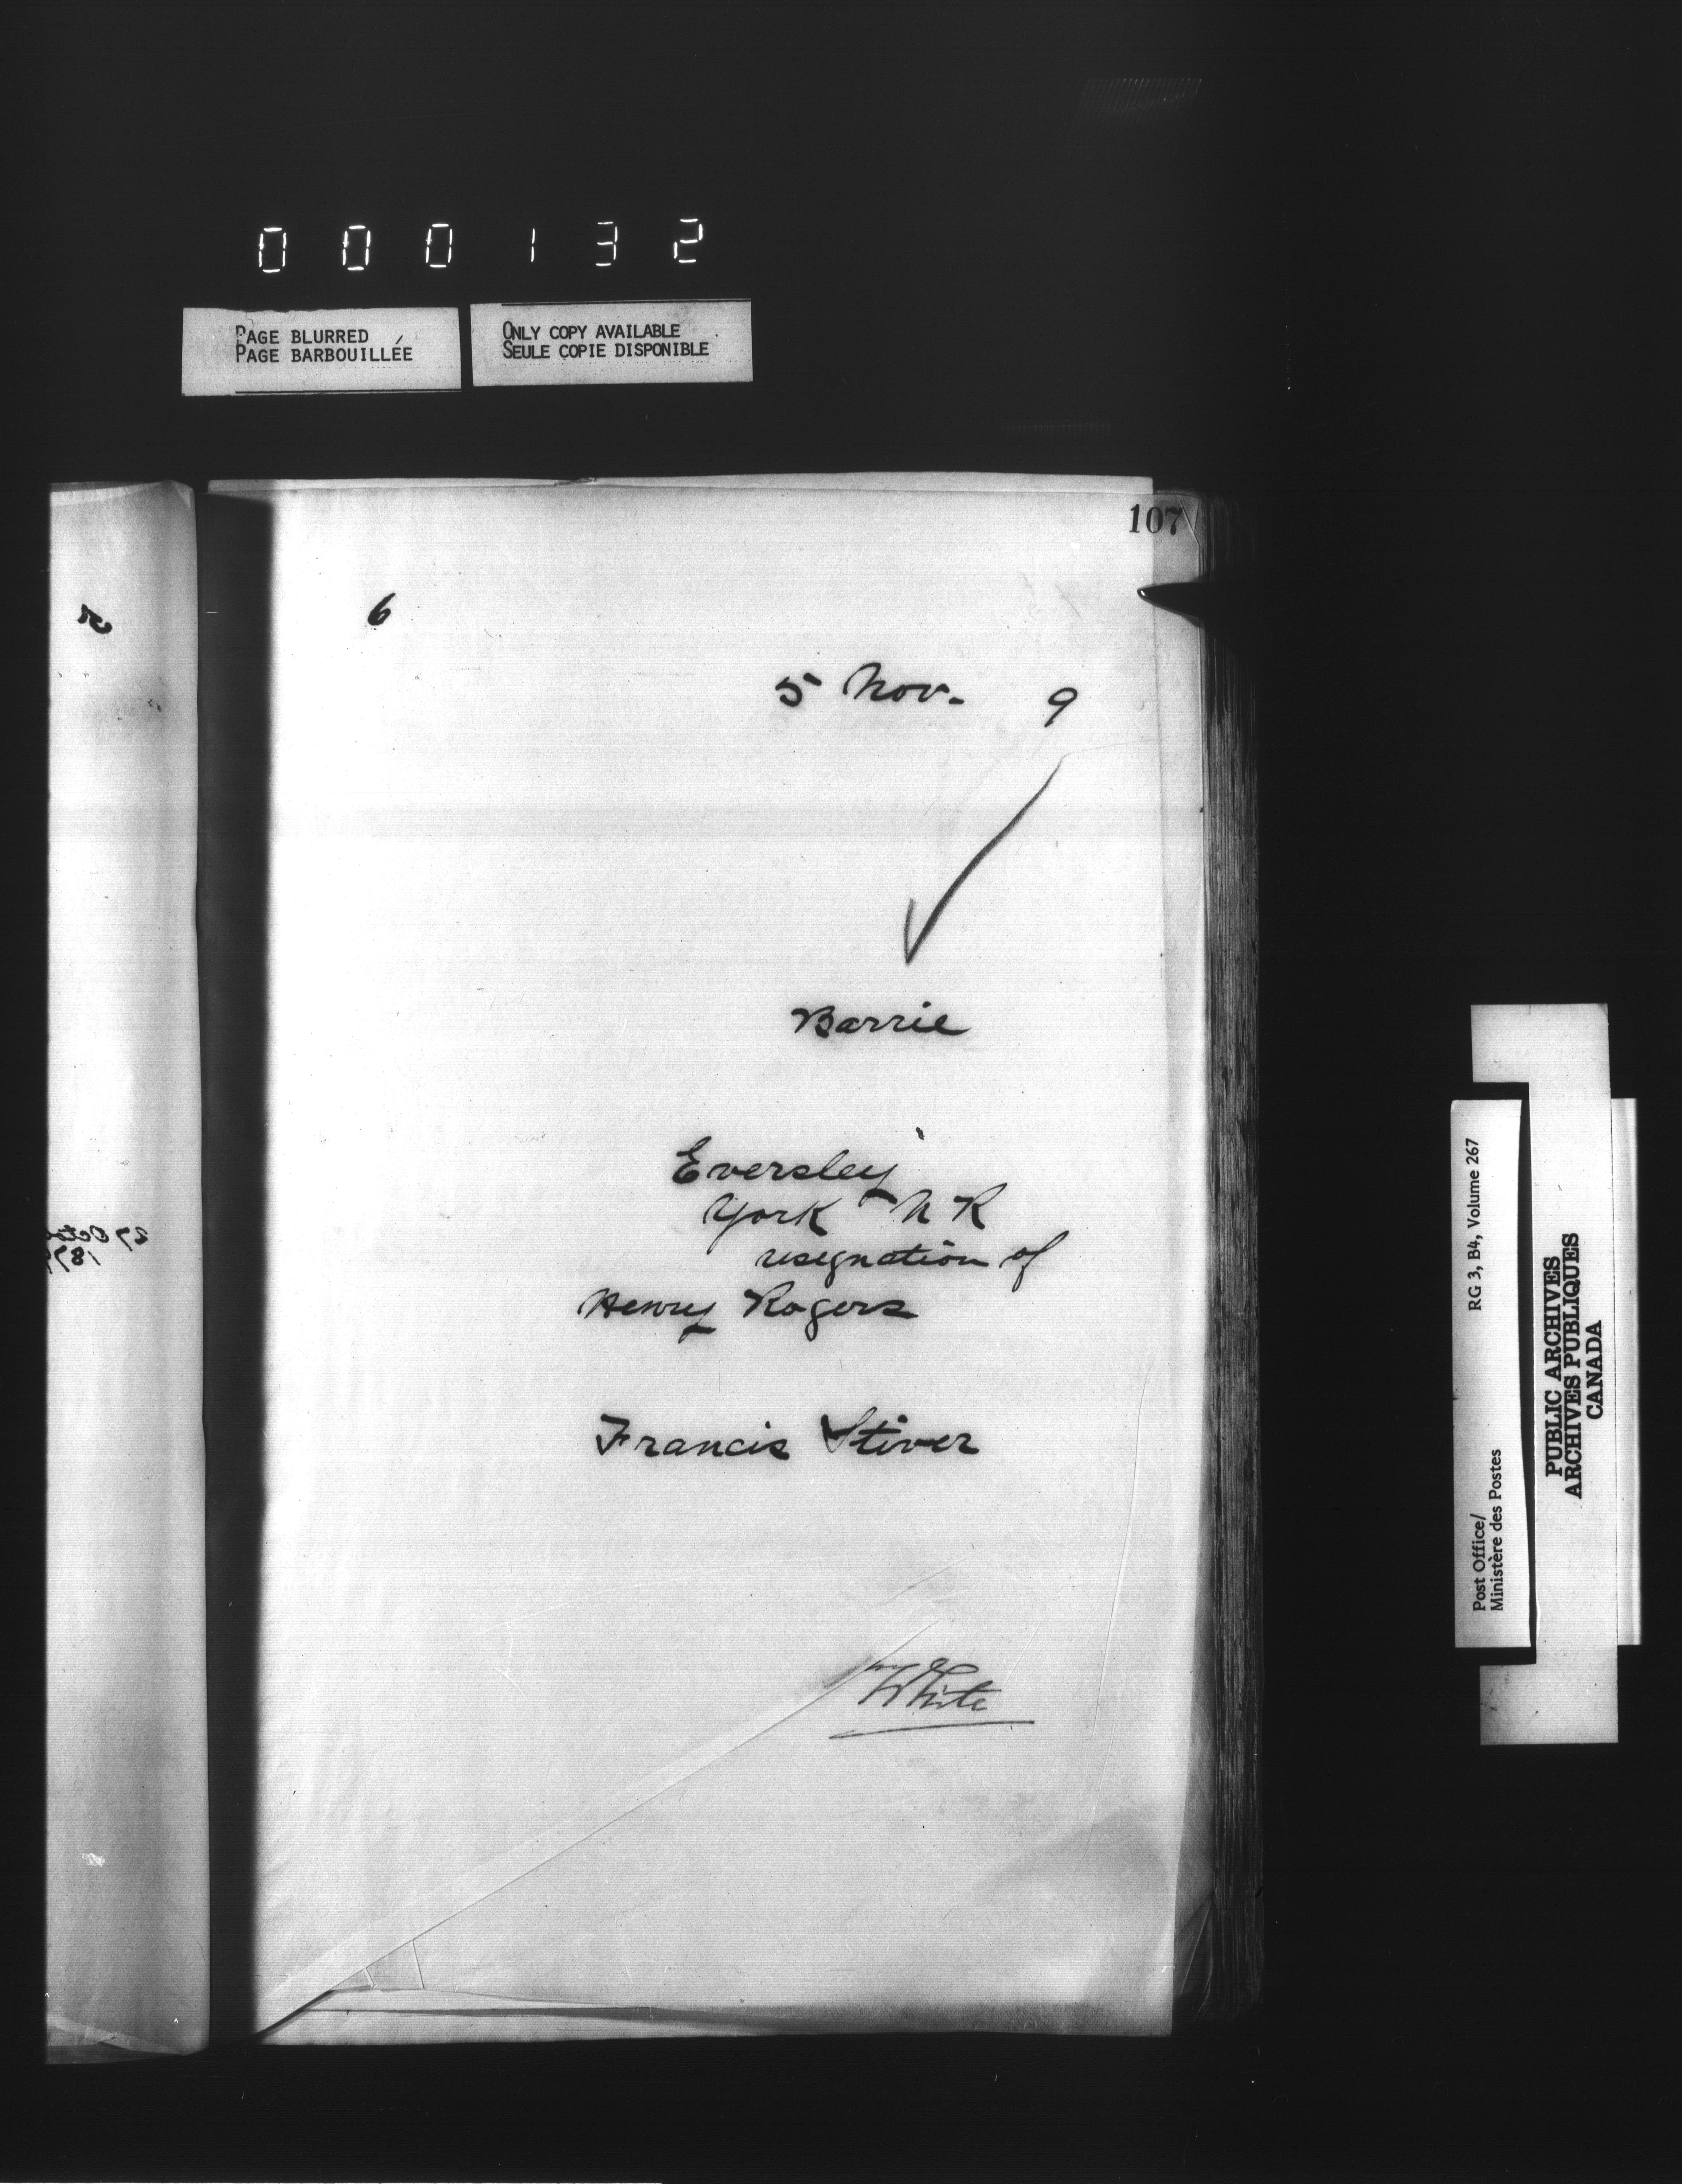 000132
PAGE BLURRED
PAGE BARBOUILLÉE
ONLY COPY AVAILABLE
SEULE COPIE DISPONIBLE
107
5
6
5 Nov. 9
Barrie
Eversley
York N R
resignation of
Henry Rogers
Francis Stiver
White
27 Octo
187
Post Office/
Ministère des Postes
RG 3, B4, Volume 267
PUBLIC ARCHIVES
ARCHIVES PUBLIQUES
CANADA